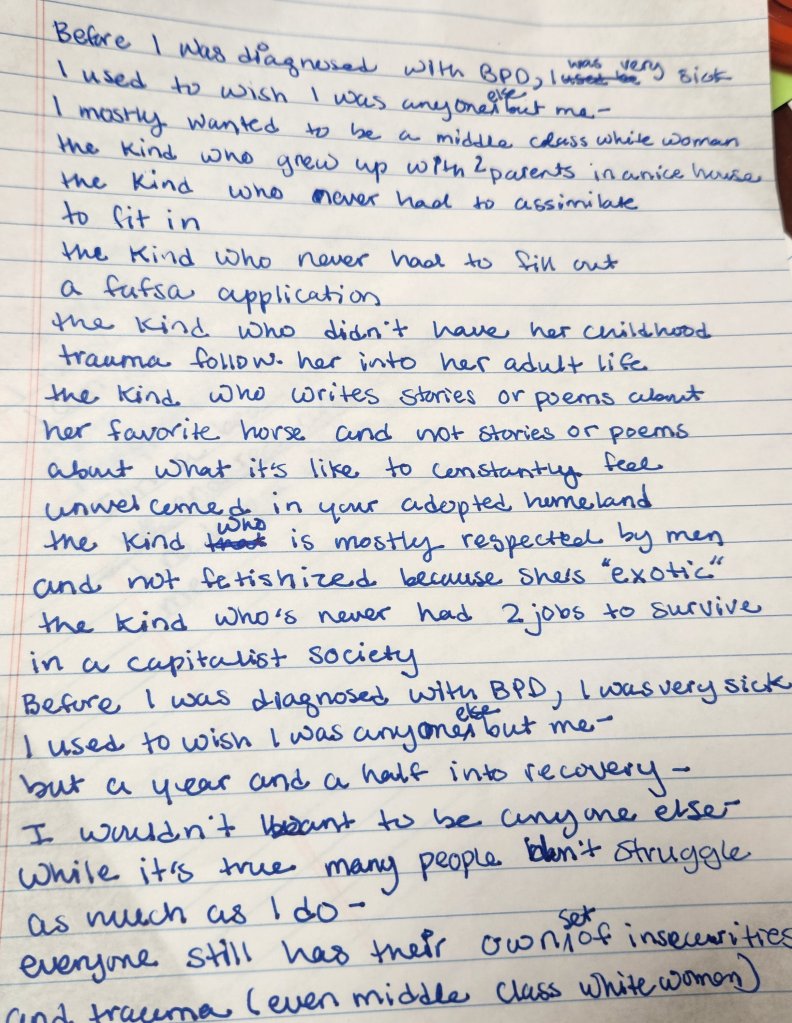 Before I was diagnosed with BPD, I was very sick
I used to wish I was anyone else but me-
I mostly wanted to be a middle class white woman
the kind who grew up with 2 parents in a nice house
the kind who never had to assimilate
to fit in
the kind who never had to fill out
a fafsa application
the kind who didn't have her childhood
trauma follow her into her adult life
the kind who writes stories or poems about
her favorite horse and not stories or poems
about what it's like to constantly feel
unwelcomed in your adopted homeland
the kind who is mostly respected by men
and not fetishized because she's "exotic"
the kind who's never had 2 jobs to survive
in a capitalist society
Before I was diagnosed with BPD, I was very sick
I used to wish I was anyone else but me-
but a year and a half into recovery-
I wouldn't want to be anyone else-
while it's true many people don't struggle
as much as I do-
everyone still has their own set of insecurities
and trauma (even middle class white women)